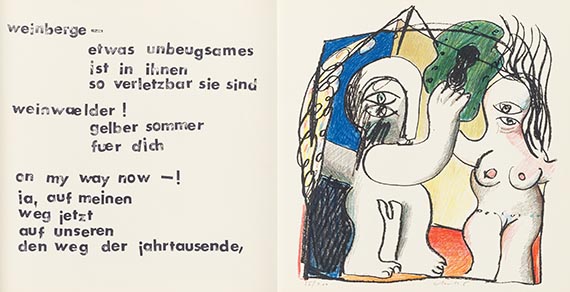 weinberge —
etwas unbeugsames
ist in ihnen
so verletzbar sie sind
weinwaelder !
gelber sommer
fuer dich
on my way now —!
ja, auf meinen
weg jetzt
auf unseren
den weg der jahrtausende,